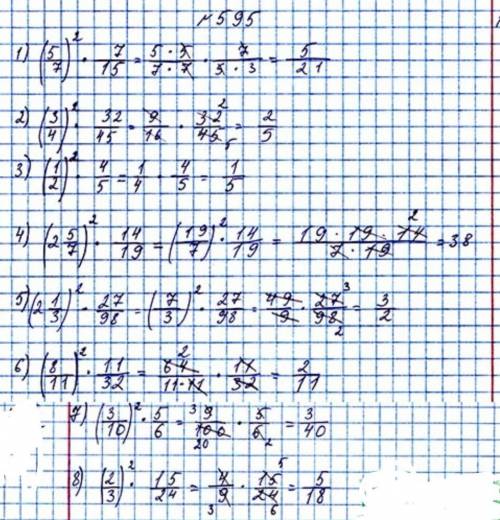 №595
1) (5/7)² · 7/15 = 5·5/7·7 · 7/5·3 = 5/21
2) (3/4)² · 32/45 = 9/16 · 32²/45₅ = 2/5
3) (1/2)² · 4/5 = 1/4 · 4/5 = 1/5
4) (2 5/7)² · 14/19 = (19/7)² · 14/19 = 19·19·14²/7·19 = 38
5) (2 1/3)² · 27/98 = (7/3)² · 27/98 = 49/9 · 27³/98₂ = 3/2
6) (8/11)² · 11/32 = 64²/11·11 · 11/32 = 2/11
7) (3/10)² · 5/6 = ³9/100₂₀ · 5/6₂ = 3/40
8) (2/3)² · 15/24 = 4/9₃ · 15⁵/24₆ = 5/18